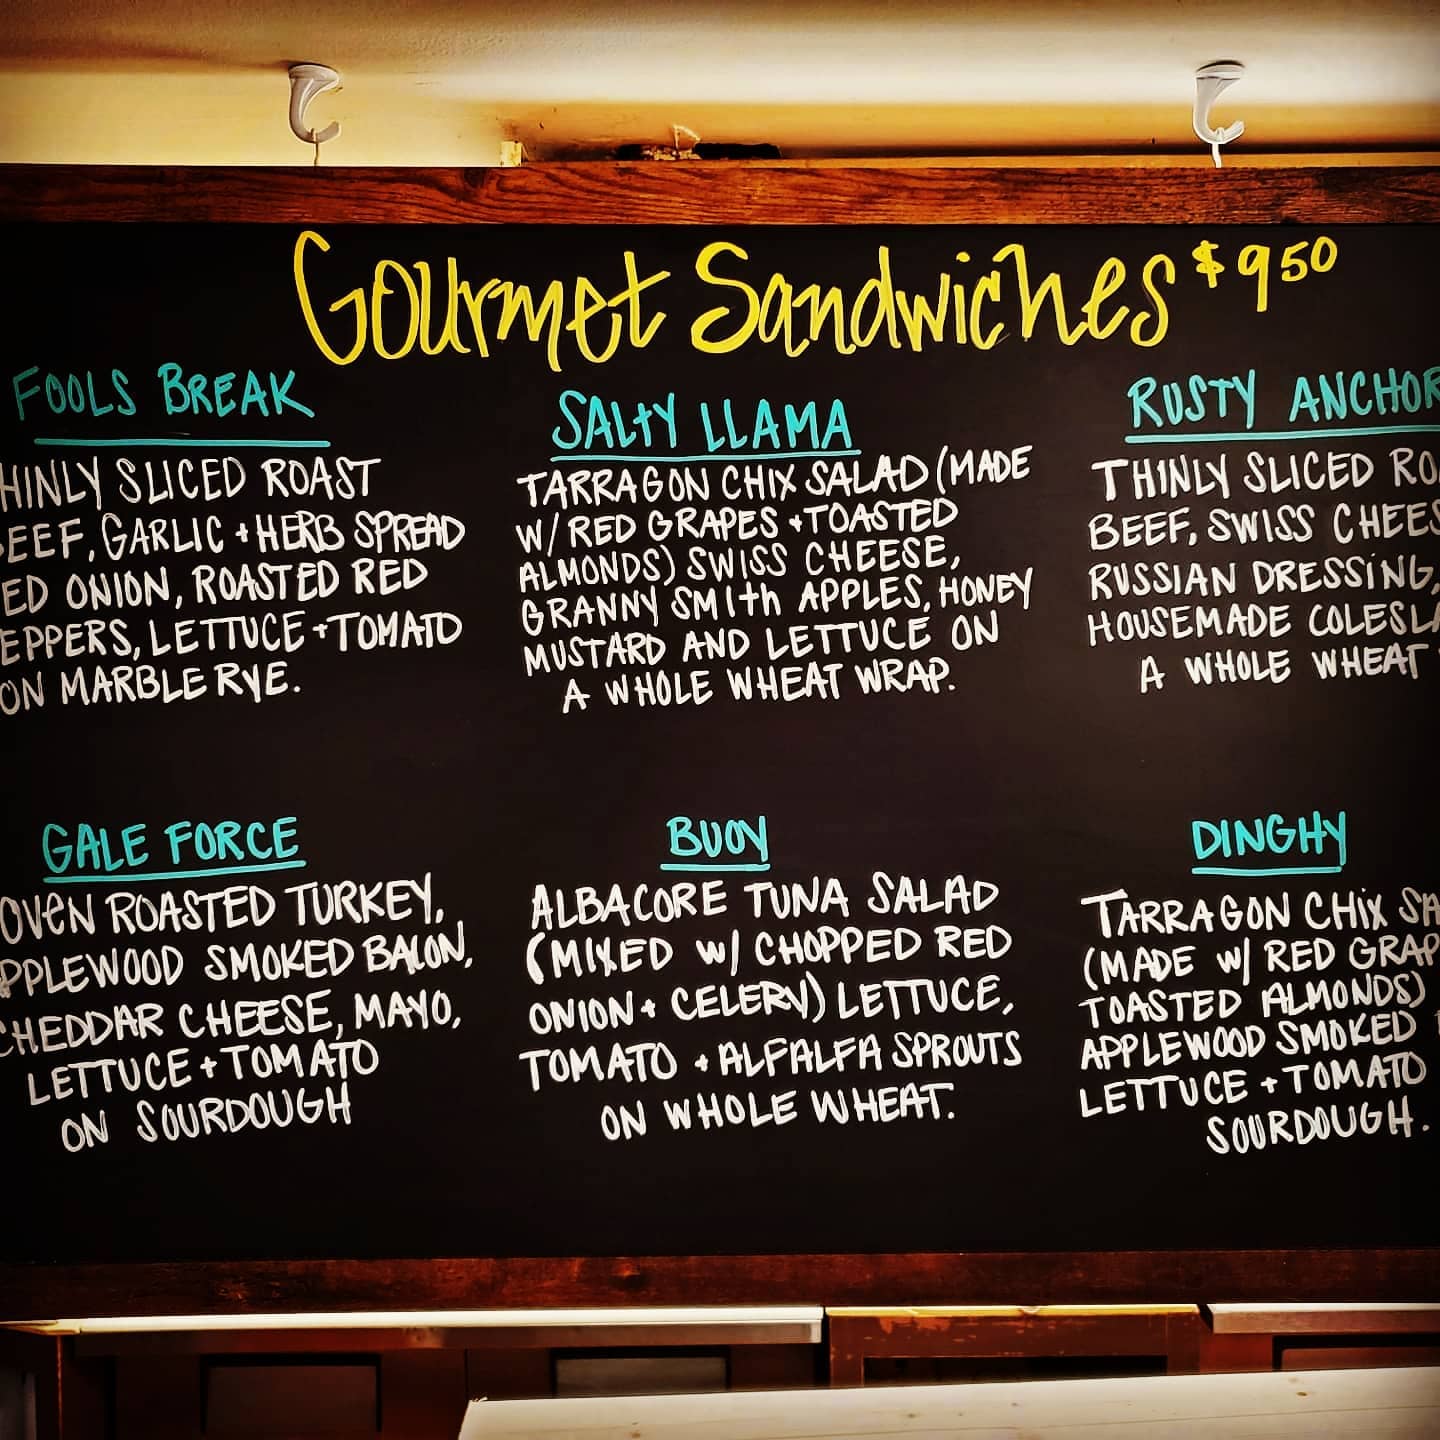 Gourmet Sandwiches $9.50
FOOLS BREAK
HINLY SLICED ROAST
EEF, GARLIC + HERB SPREAD
ED ONION, ROASTED RED
EPPERS, LETTUCE + TOMATO
ON MARBLE RYE.
SALTY LLAMA
TARRAGON CHIX SALAD (MADE
W/ RED GRAPES + TOASTED
ALMONDS) SWISS CHEESE,
GRANNY SMITH APPLES, HONEY
MUSTARD AND LETTUCE ON
A WHOLE WHEAT WRAP.
RUSTY ANCHOR
THINLY SLICED RO
BEEF, SWISS CHEES
RUSSIAN DRESSING,
HOUSEMADE COLESLA
A WHOLE WHEAT
GALE FORCE
OVEN ROASTED TURKEY,
PPLEWOOD SMOKED BACON,
CHEDDAR CHEESE, MAYO,
LETTUCE + TOMATO
ON SOURDOUGH
BUOY
ALBACORE TUNA SALAD
(MIXED W/ CHOPPED RED
ONION + CELERY) LETTUCE,
TOMATO + ALFALFA SPROUTS
ON WHOLE WHEAT.
DINGHY
TARRAGON CHIX SA
(MADE W/ RED GRAP
TOASTED ALMONDS)
APPLEWOOD SMOKED
LETTUCE + TOMATO
SOURDOUGH.